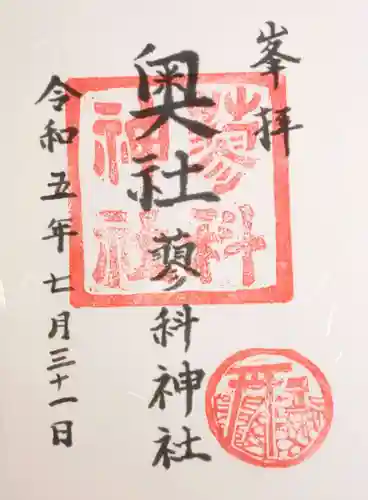 峯拝
奥社蓼科神社
令和五年七月三十一日
蓼科
神社